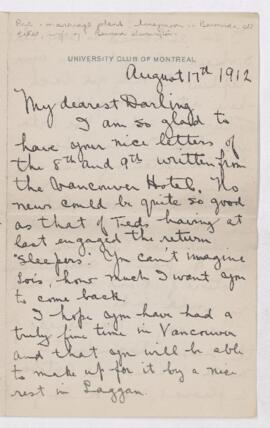 Re: marriage plans honeymoon - Bermuda, old
UNIVERSITY CLUB OF MONTREAL
August 17th 1912
My dearest Darling
I am so glad to
have your nice letters of
the 8th and 9th written from
the Vancouver Hotel. No
news could be quite so good
as that of Ted's having at
last engaged the return
"sleepers". You can't imagine
Lois, how much I want you
to come back.
I hope you have had a
truly fine time in Vancouver
and that you will be able
to make up for it by a nice
rest in Laggan.